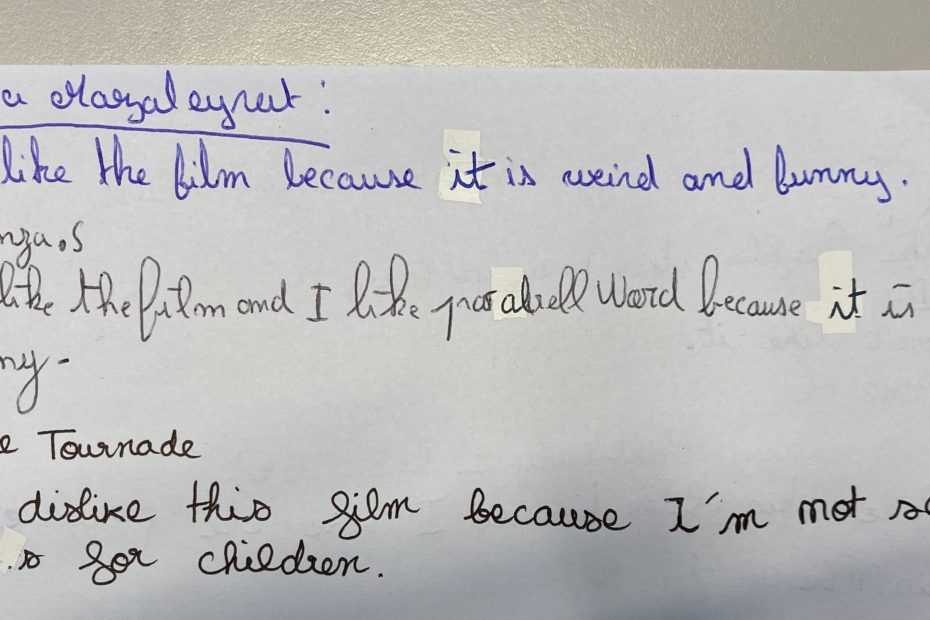 a Mazaleyrat :
like the film because it is weird and funny.
nza.S
like the film and I like parallell Word because it is
ny-
e Tournade
dislike this film because I'm not s
s for children.